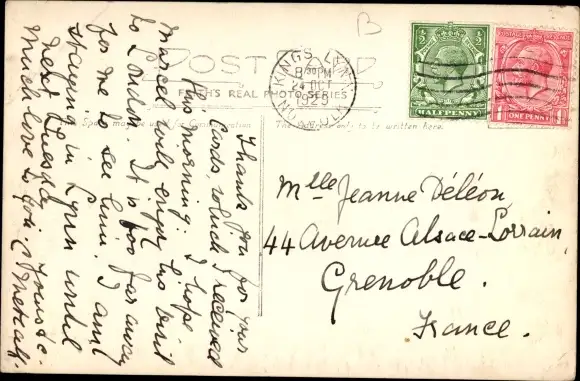 POST CARD
FRITH'S REAL PHOTO SERIES
KINGS LYNN
8 30 PM
24 OCT
1925
NORFOLK
HALFPENNY
ONE PENNY
B
The Address only to be written here.
Thank you for your
cards, which I received
this morning. I hope
Marcel will enjoy his visit
to London. It is too far away
for me to see him. I am
staying in Lynn until
next Tuesday.
Much love to you. Yours
Metcalf.
Mlle Jeanne Déléon,
44 Avenue Alsace-Lorrain,
Grenoble.
France.